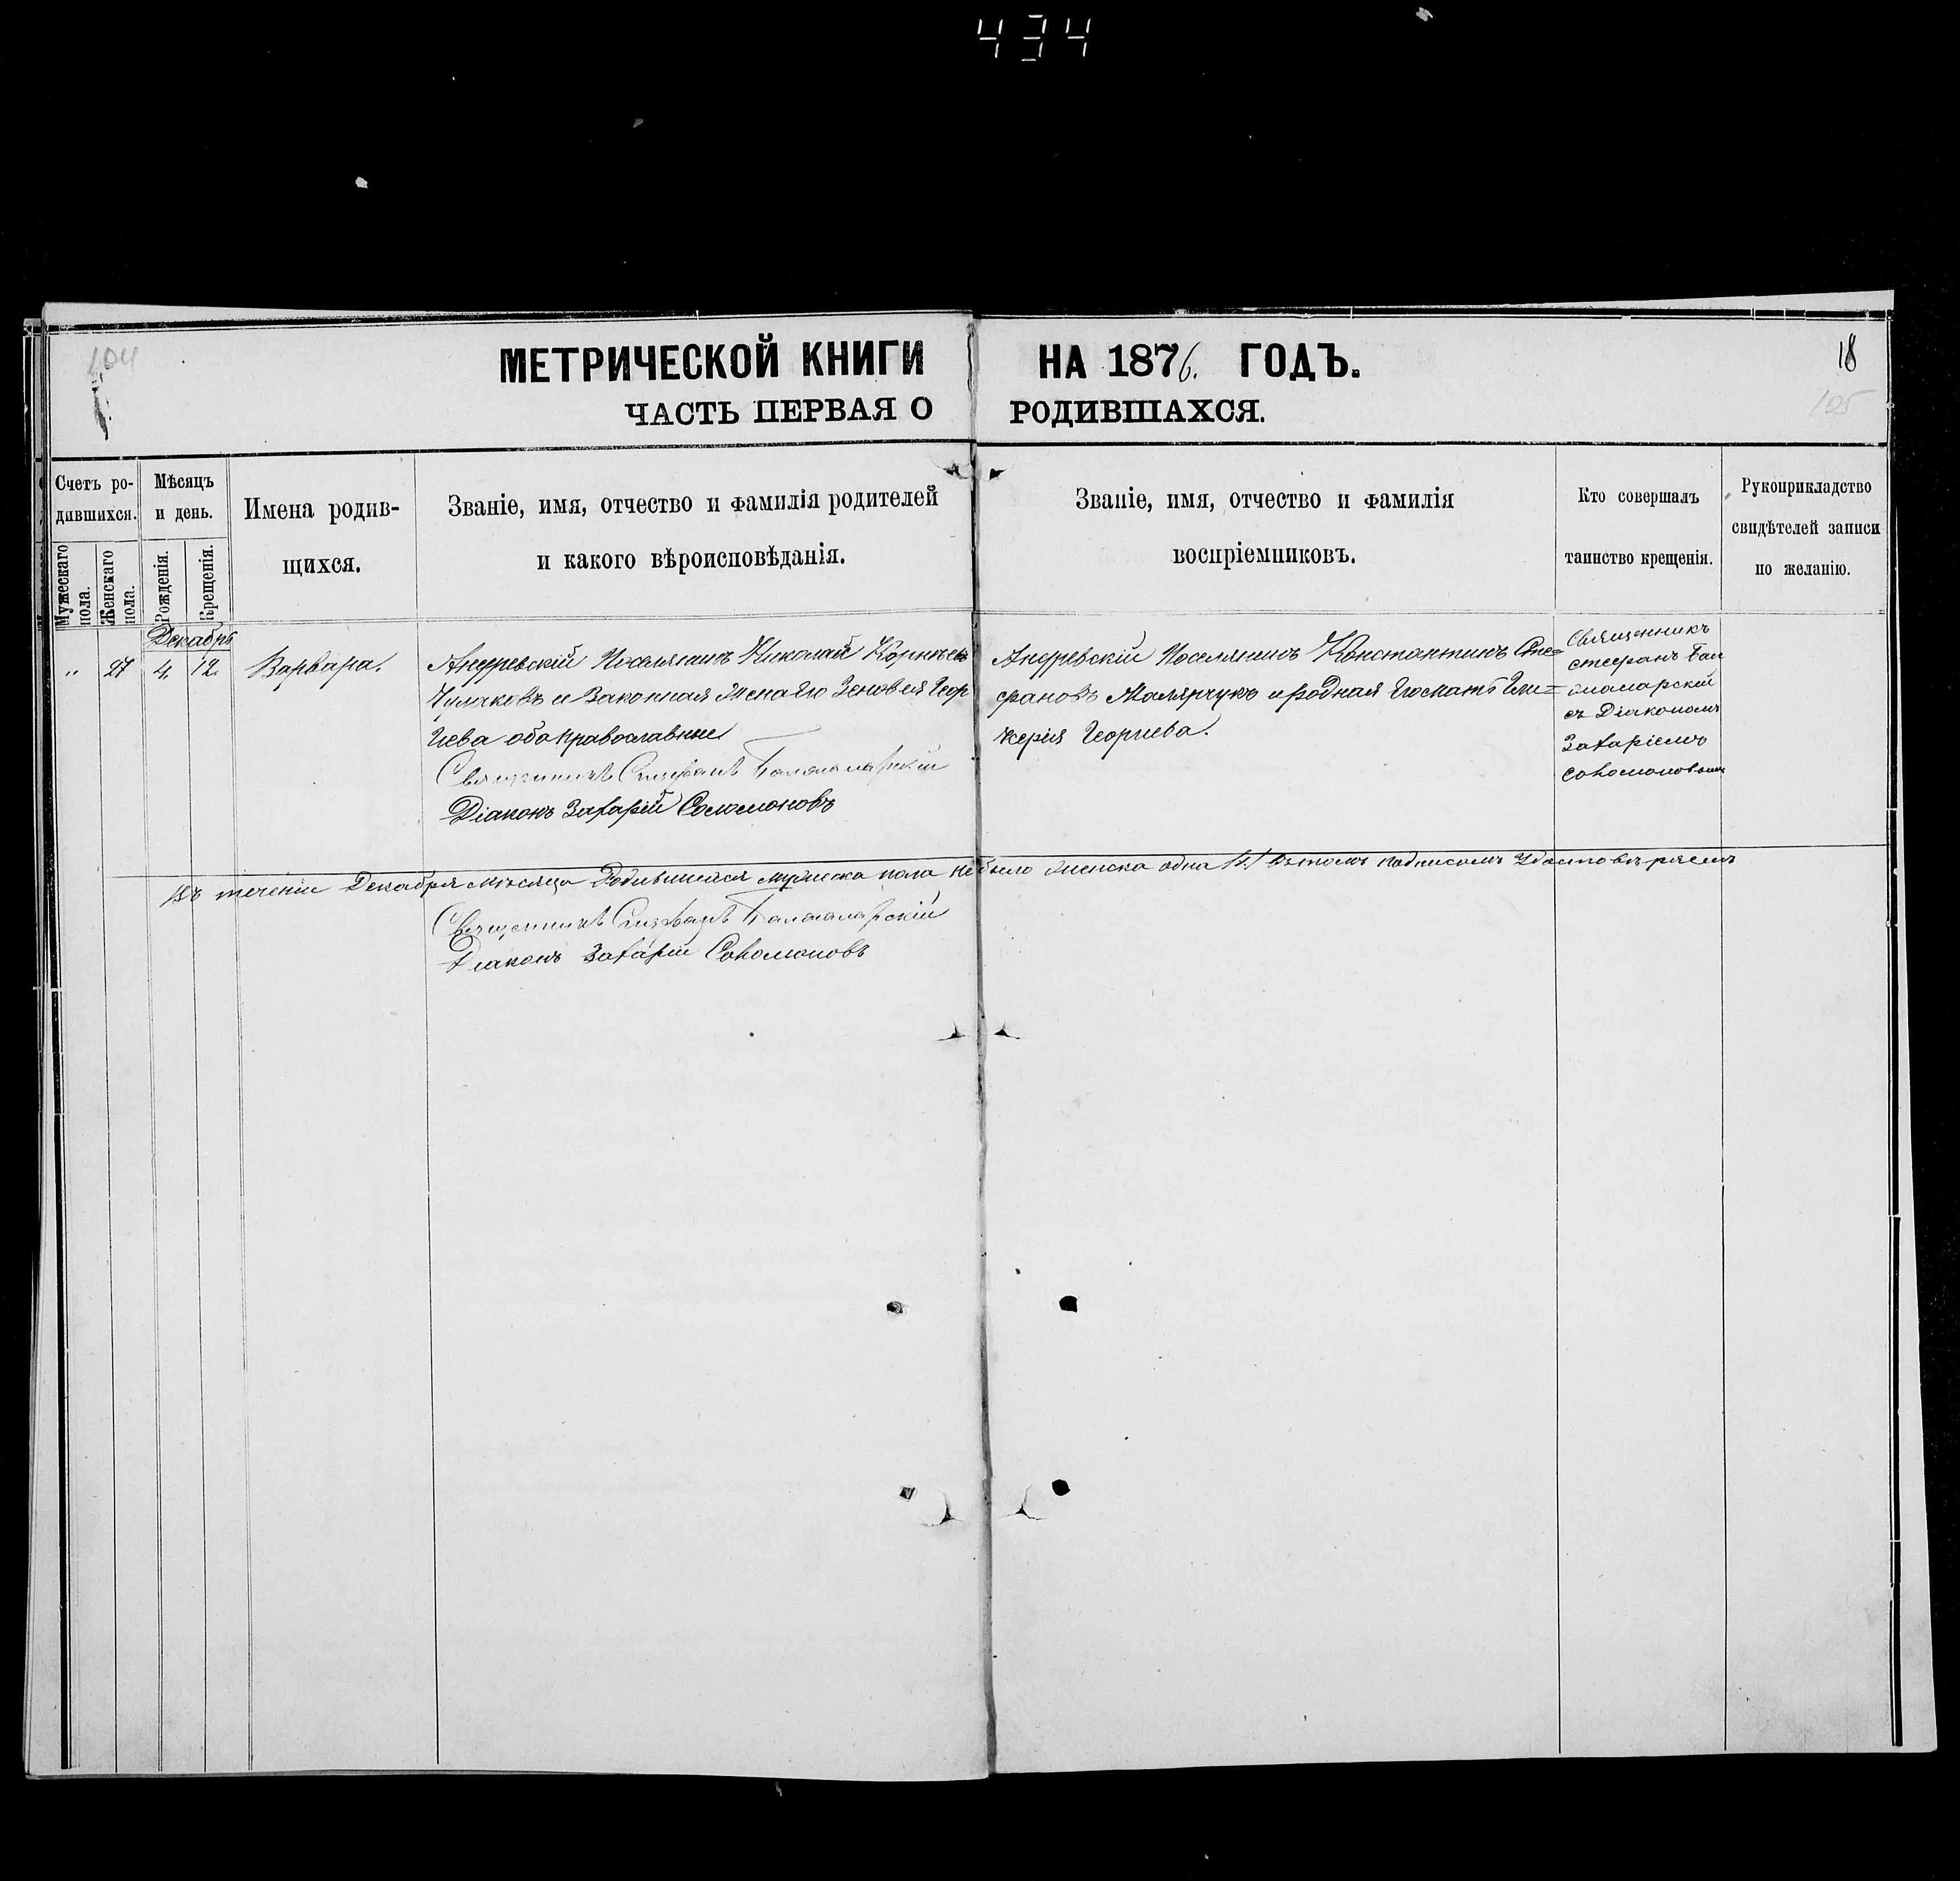 434
104
МЕТРИЧЕСКОЙ КНИГИ НА 1876. ГОДЪ.
18
ЧАСТЬ ПЕРВАЯ О РОДИВШАХСЯ.
105
Счетъ ро-
дившихся.
Мужескаго пола.
Женскаго пола.
Мѣсяцъ
и день.
Рожденія.
Крещенія.
Имена родив-
щихся.
Званіе, имя, отчество и фамилія родителей
и какого вѣроисповѣданія.
Званіе, имя, отчество и фамилія
воспріемниковъ.
Кто совершалъ
таинство крещенія.
Рукоприкладство
свидѣтелей записи
по желанію.
Декабрь
" 27 4. 12. Варвара.
Поселянинъ Николай Корнѣевъ
Чумаковъ и Законная Жена Его Зеновея Геор
гиева оба православные
Священникъ Стефанъ
Діаконъ Захарій Соломоновъ
Поселянинъ Константинъ Сте=
фановъ Малярчукъ и родная Гли=
керія Георгиева.
Священникъ
Стефанъ
съ Діакономъ
Захаріемъ
Соломоновымъ
Въ теченіи Декабря мѣсяца Родившихся мужеска пола не было женска одна /1./ въ томъ подписомъ Удостовѣряемъ
Священникъ Стефанъ
Діаконъ Захарій Соломоновъ